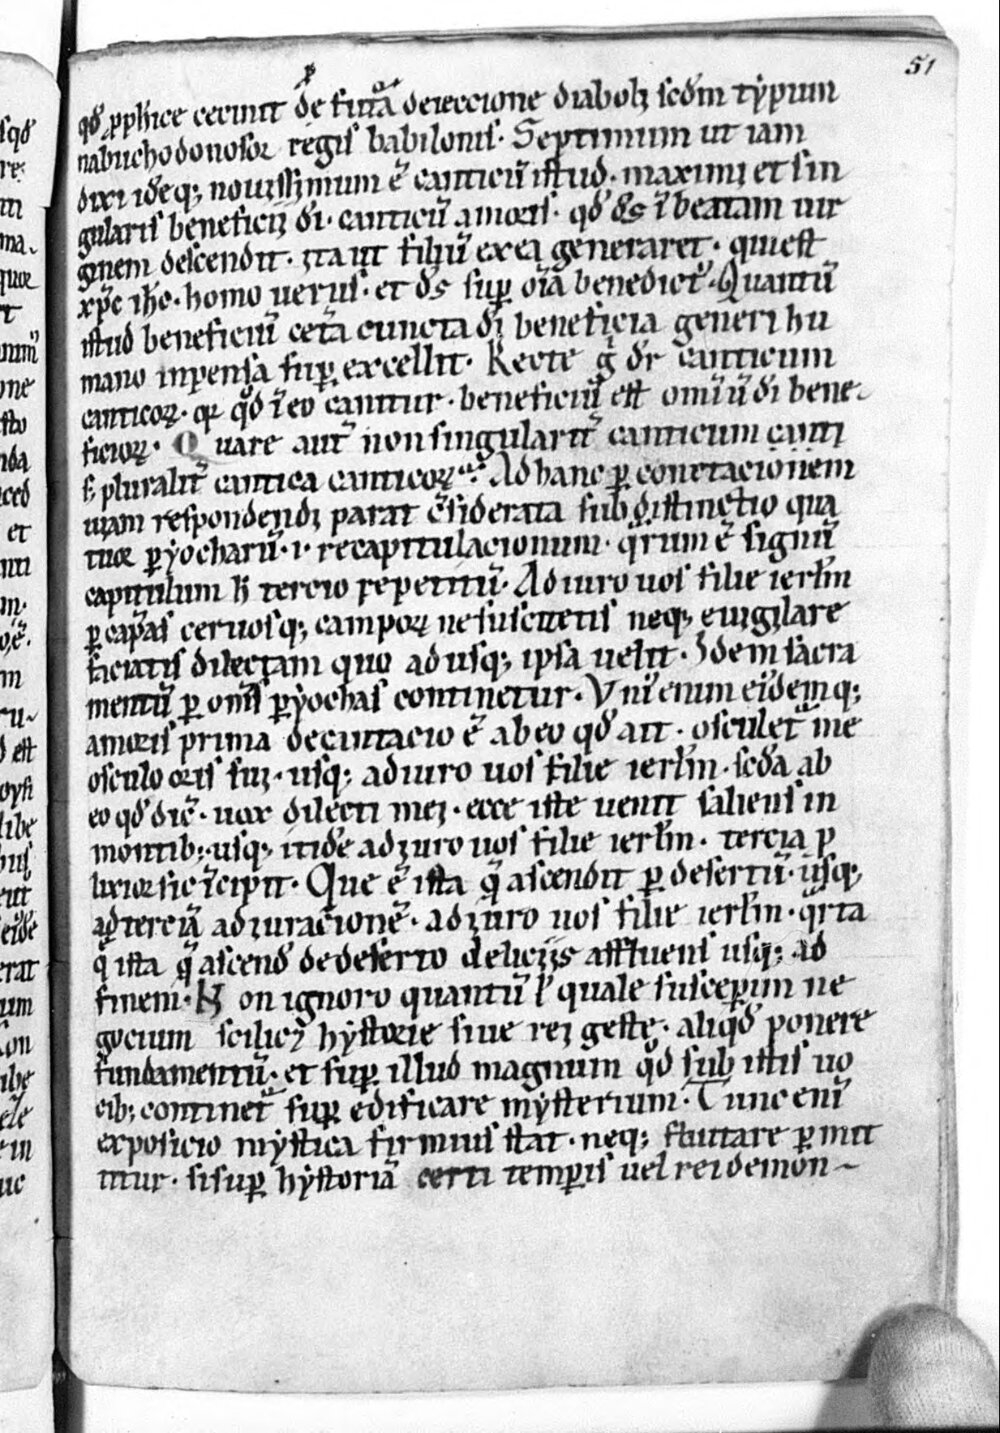 51
qđ ꝓph̄ice cecinit de fut̄a deieccione diaboli scđm tẏpum
nabuchodonosor regis babilonis. Septimum ut iam
dixi ideq; nouissimum ē canticū istud. maximi et sin
gularis beneficij di. canticū amoris. qđ ds̄ ī beatam uir
ginem descendit. ita ut filiū ex ea generaret. qui est
xp̄c ih̄c. homo uerus. et ds̄ suꝑ oīa benedict᷒. Quantū
istud beneficiū cet̄a cuncta di beneficia generi hu
mano inpensa suꝑ excellit. Recte g̊ dr̄ canticum
canticoꝝ. qr qđ ī eo canitur. beneficiū est omiū di bene-
ficioꝝ. Quare aut̄ non singularit̄ canticum canti
s; pluralit̄ cantica canticoꝝ. Ad hanc ꝑconctacionem
uiam respondendi parat c̄siderata subdistinctio qua
tuor ꝑẏocharū .i. recapitulacionum. qrum ē signū
capitulum h̄ tercio repetitū. Adiuro uos filie ierl̄m
ꝑ cap̄as ceruosq; campoꝝ ne suscitetis neq; euigilare
faciatis dilectam quo adusq; ipsa uelit. Idem sacra
mentū ꝑ om̄s ꝑẏochas continetur. Vni᷒ enim eiđemq;
amoris prima decantacio ē ab eo qđ ait. osculet᷑ me
osculo oris sui. usq; adiuro uos filie ierl̄m. scđa ab
eo qđ dic̄. uox dilecti mei. ecce iste uenit saliens in
montib;. usq; itiđe adiuro uos filie ierl̄m. tercia ꝑ
lixior sic īcipit. Que ē ista q̄ ascendit ꝑ desertū. usq;
ad terciā adiuracionē. adiuro uos filie ierl̄m. qrta
q̄ ista q̄ ascenđ de deserto delicijs affluens usq; ad
finem. Non ignoro quantū ł quale susceperim ne
gocium scilicȝ hẏstorie siue rei geste. aliqđ ponere
fundamentū. et suꝑ illud magnum qđ sub istis uo
cib; continet᷑ suꝑ edificare mẏsterium. Tunc eni
exposicio mẏstica firmius stat. neq; fluitare ꝑmit
titur. si suꝑ hẏstoriā certi temꝑis uel rei demon-